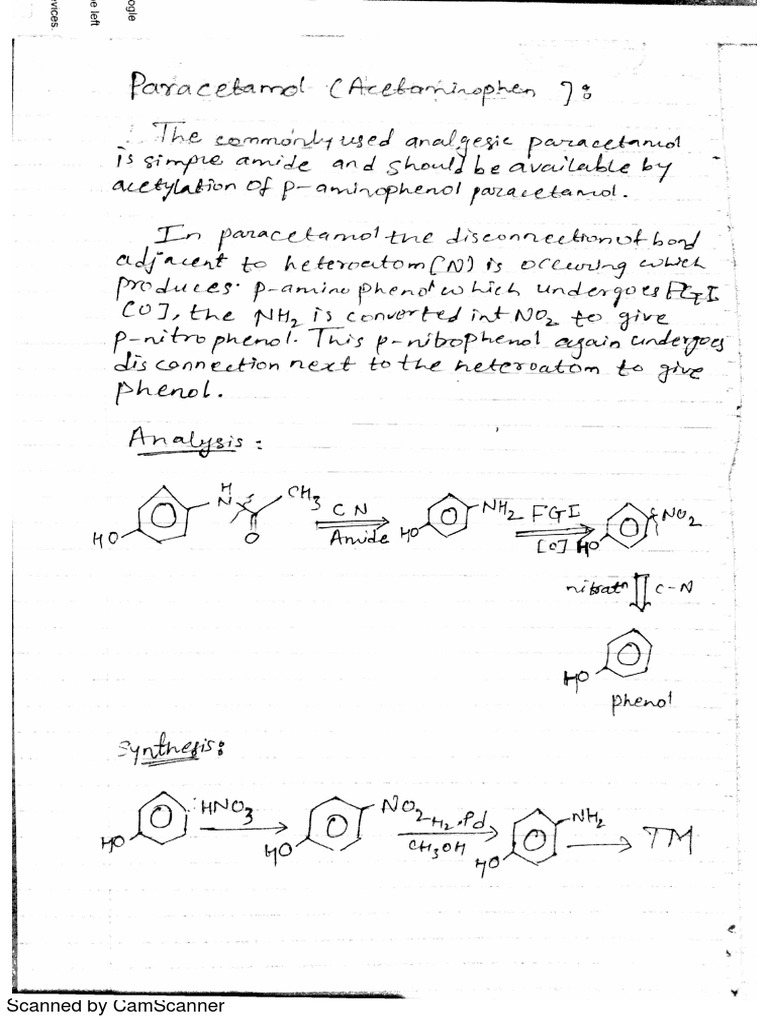 ogle
e left
vices.
Paracetamol (Acetaminophen ] :
The commonly used analgesic paracetamol
is simple amide and should be available by
acetylation of p-aminophenol paracetamol.
In paracetamol the disconnection of bond
adjacent to heteroatom (N) is occuring which
produces p-amino phenol which undergoes FGI
[O], the NH2 is converted int NO2 to give
p-nitrophenol. This p-nitrophenol again undergoes
disconnection next to the heteroatom to give
phenol.
Analysis :
H
N CH3 O HO
C N
Amide
NH2 HO
FGI
[O]
NO2 HO
nitratn C-N
HO
phenol
Synthesis :
HO
HNO3
NO2 HO
H2.Pd
CH3OH
NH2 HO
TM
Scanned by CamScanner